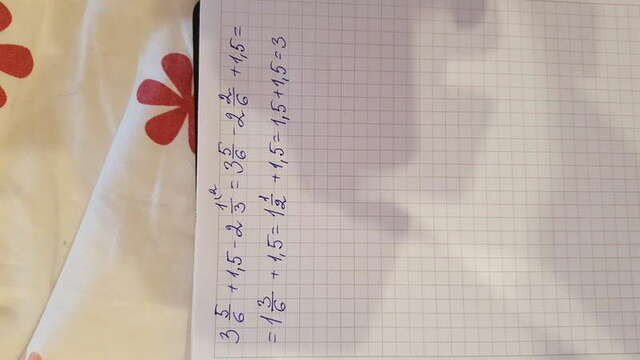 3 5/6 + 1,5 - 2 1/3 (2 = 3 5/6 - 2 2/6 + 1,5 =
= 1 3/6 + 1,5 = 1 1/2 + 1,5 = 1,5 + 1,5 = 3